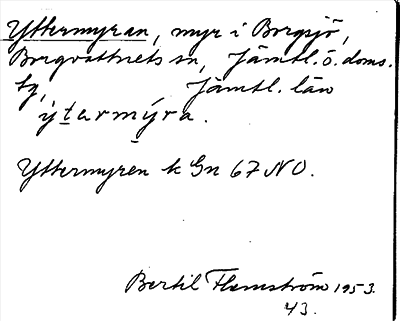 Yttermyran, myr i Borgsjö,
Borgvattnets sn, Jämtl. ö. doms.
tg, Jämtl. län
ýtarmýra.
Yttermyren k Gn 67 NO.
Bertil Flemström 1953.
43.